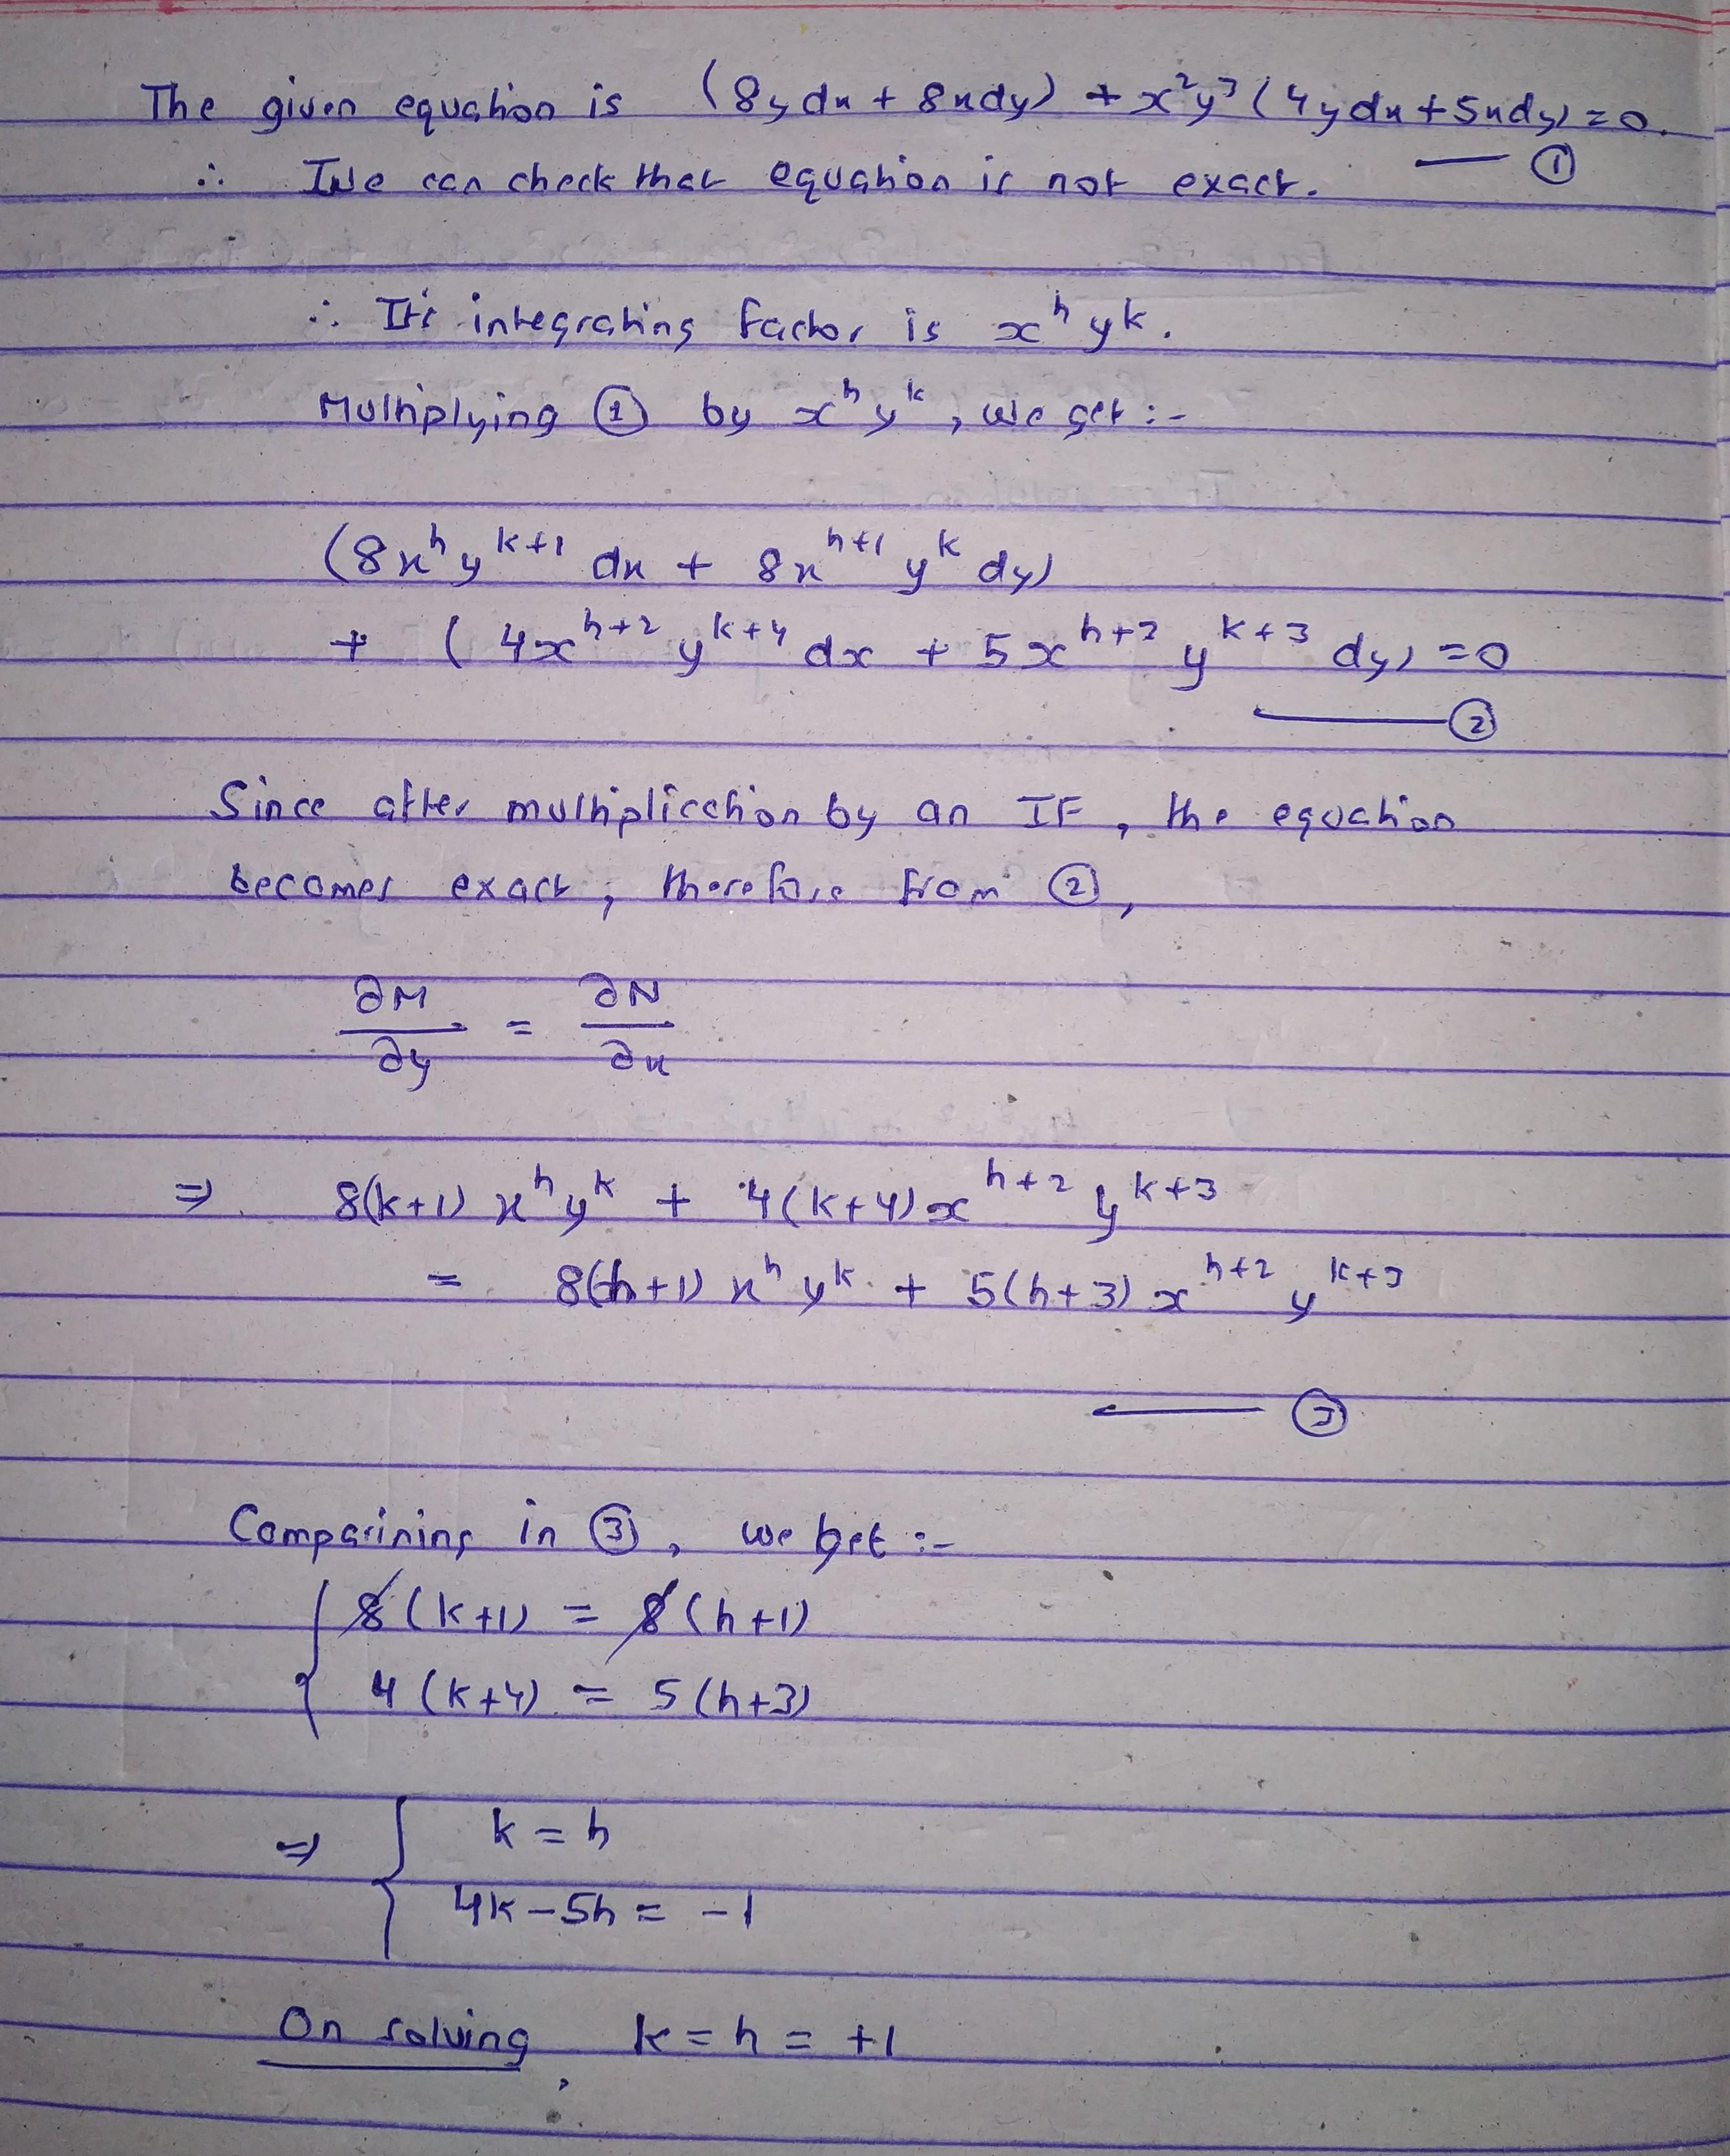 The given equation is (8ydx + 8xdy) + x²y³(4ydx+5xdy)=0.
∴ We can check that equation is not exact. — ①
∴ It's integrating factor is xʰ yᵏ.
Multiplying ① by xʰ yᵏ, we get :-
(8xʰ yᵏ⁺¹ dx + 8xʰ⁺¹ yᵏ dy)
+ (4xʰ⁺² yᵏ⁺⁴ dx + 5xʰ⁺³ yᵏ⁺³ dy) =0
— ②
Since after multiplication by an IF, the equation
becomes exact, therefore from ②,
∂M/∂y = ∂N/∂x
⇒ 8(k+1) xʰ yᵏ + 4(k+4) xʰ⁺² yᵏ⁺³
= 8(h+1) xʰ yᵏ + 5(h+3) xʰ⁺² yᵏ⁺³
— ③
Comparining in ③, we get :-
8(k+1) = 8(h+1)
4(k+4) = 5(h+3)
⇒ k = h
4k-5h = -1
On solving, k = h = +1